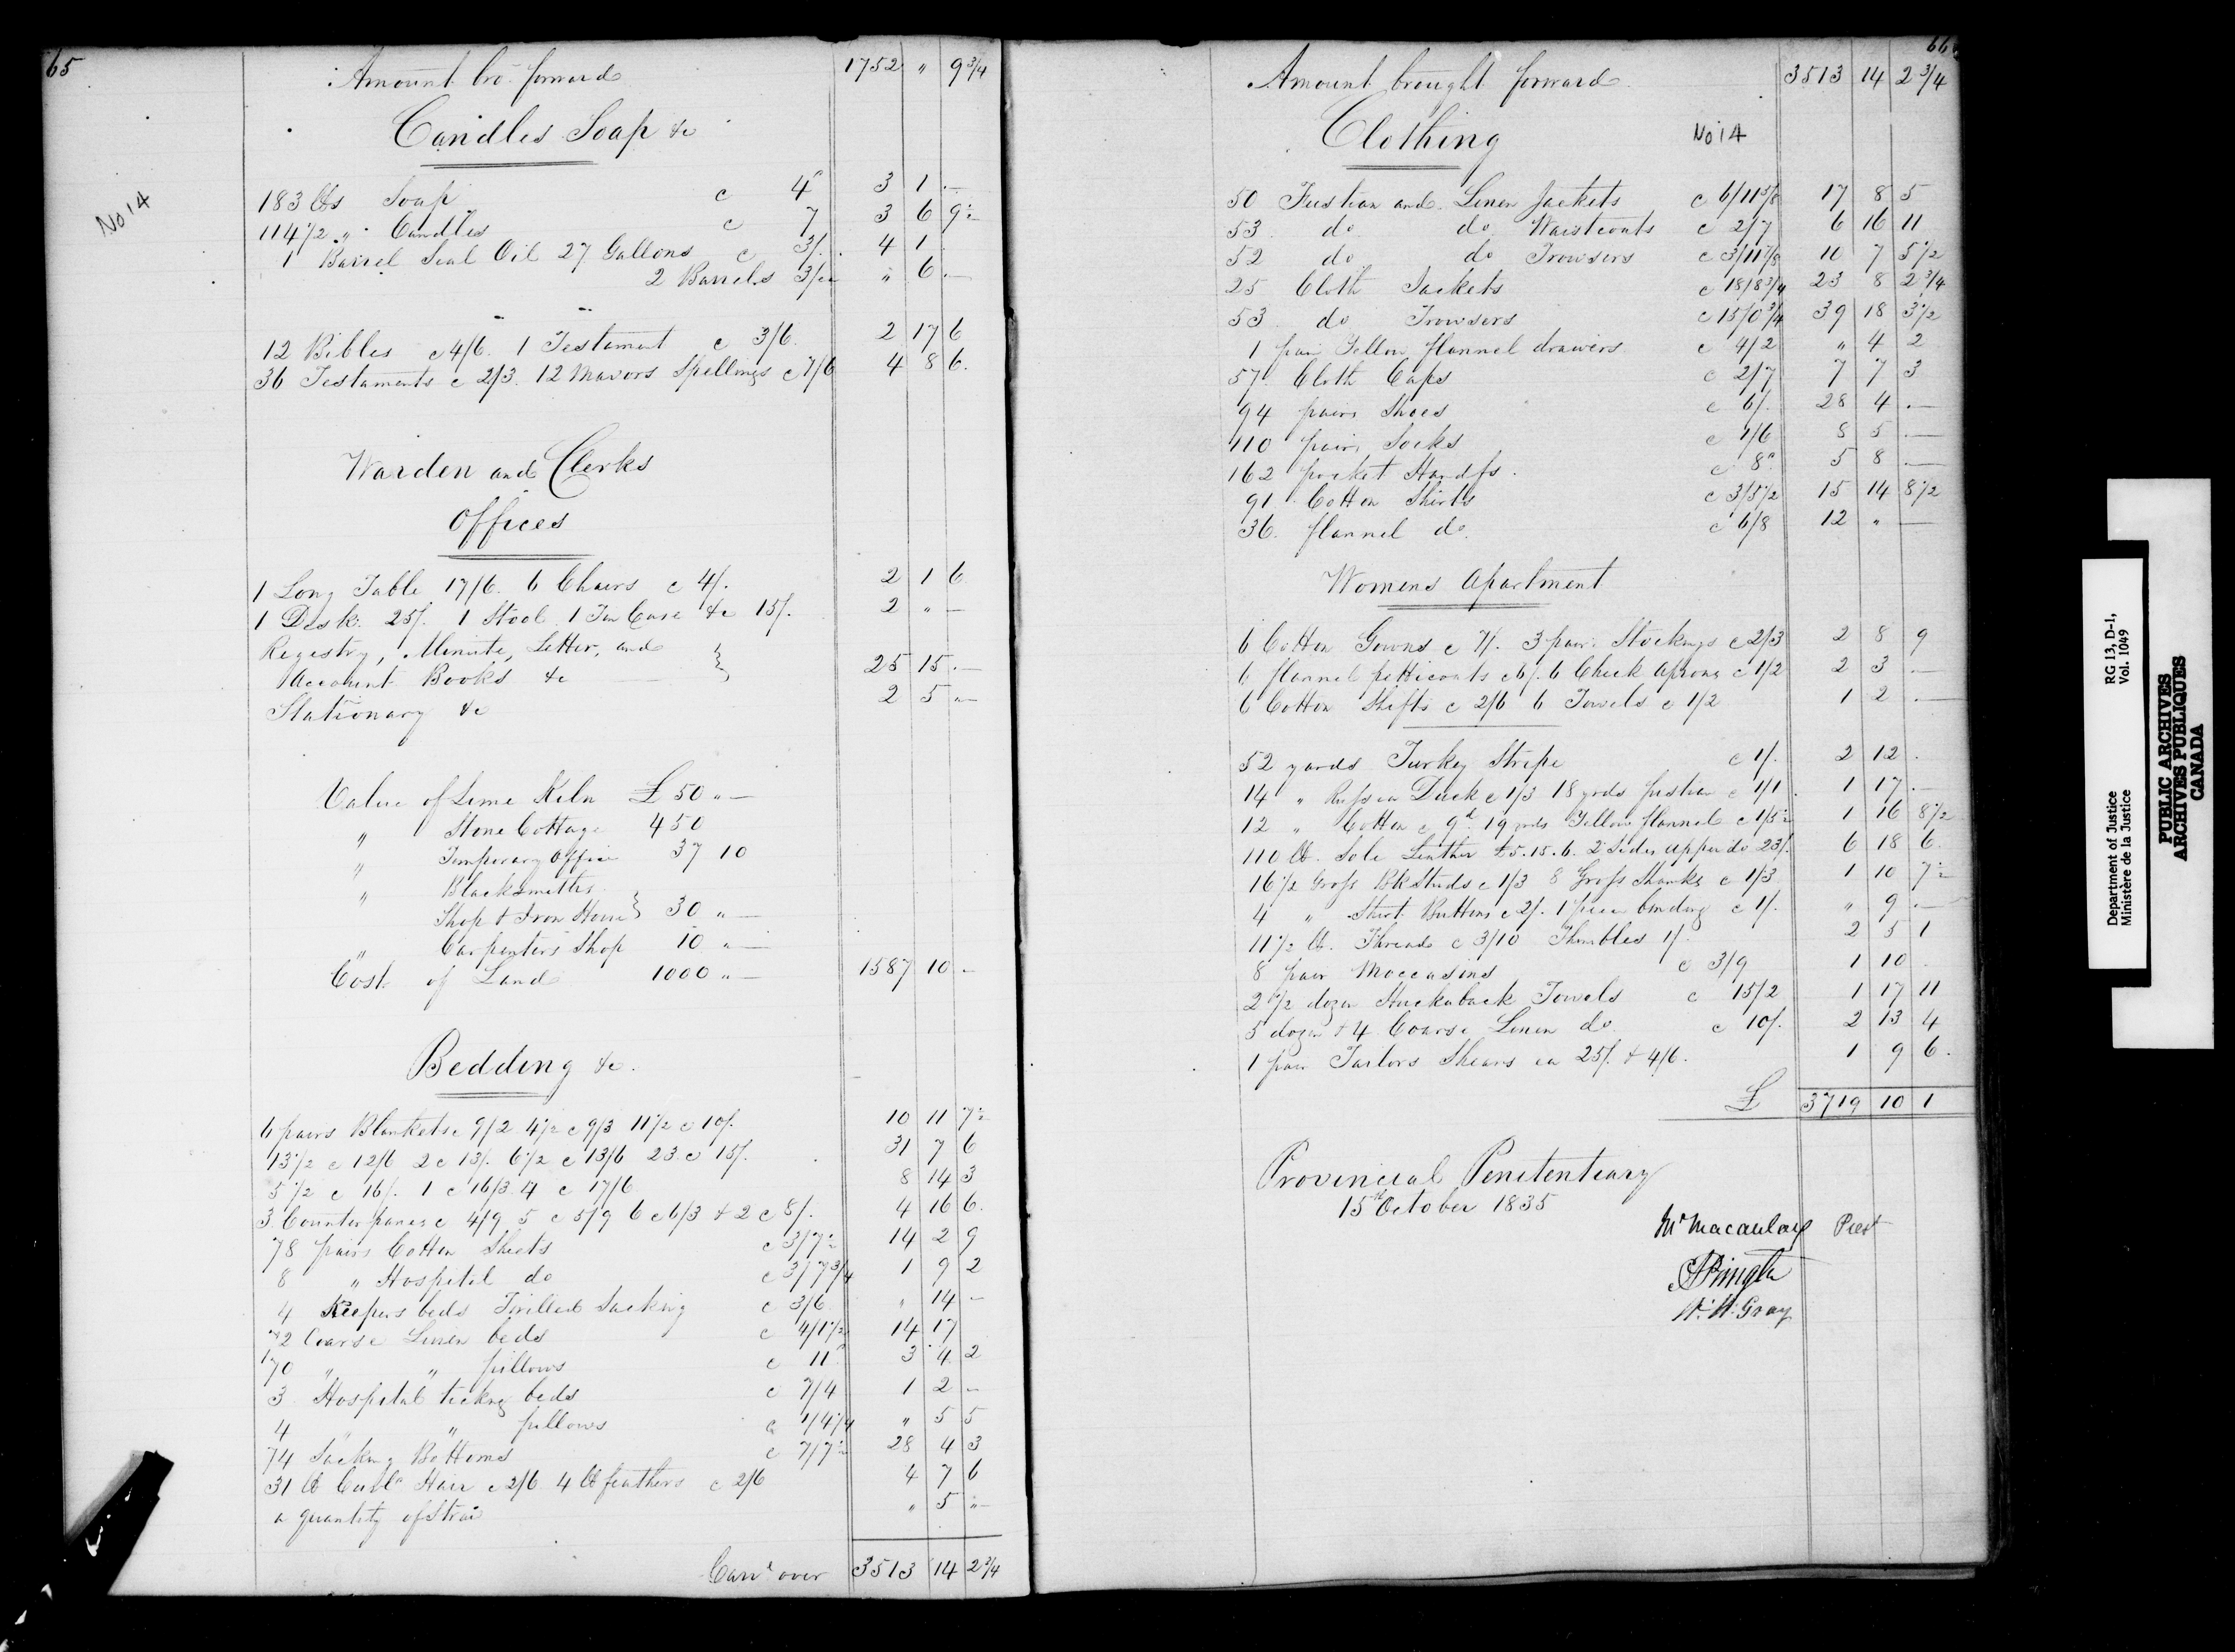 65
Amount bro. forward 1752 " 9 3/4
Candles Soap &c
No 14
183 lbs Soap c 4d 3 1 -
114 1/2 " Candles c 7 3 6 9 1/2
1 Barrel Seal Oil 27 Gallons c 3/. 4 1
2 Barrels 3/ea " 6 -
12 Bibles c 4/6 1 Testament c 3/6 2 17 6
36 Testaments c 2/3. 12 Mavors Spellings c 7/6 4 8 6
Warden and Clerks
Offices
1 Long Table 17/6. 6 Chairs c 4/. 2 1 6
1 Desk 25/. 1 Stool 1 Tin Case &c 15/. 2 " -
Registry, Minute, Letter, and
Account Books &c } 25 15 -
Stationary &c 2 5 "-
Value of Lime Kiln £50 " -
" Stone Cottage 450
" Temporary Office 37 10
" Blacksmiths
Shop & Iron House } 30 " -
" Carpenters Shop 10 " -
Cost of Land 1000 " - 1587 10 -
Bedding &c.
6 pairs Blankets c 9/2 4 1/2 c 9/3 11 1/2 c 10/. 10 11 7 1/2
13 1/2 c 12/6 2 c 13/. 6 1/2 c 13/6 23 c 15/. 31 7 6
5 1/2 c 16/. 1 c 16/3 4 c 17/6 8 14 3
3 Counterpanes c 4/9 5 c 5/9 6 c 6/3 & 2 c 8/. 4 16 6
78 pairs Cotten Sheets c 3/7 1/2 14 2 9
8 " Hospital do c 3/7 3/4 1 9 2
4 Keepers beds Twilled Sacking c 3/6 " 14 -
72 Coarse Linen beds c 4/1 1/2 14 17
70 " " pillows c 11d 3 4 2
3 Hospital ticking beds c 7/4 1 2 -
4 " " pillows c 1/4 1/4 " 5 5
74 Sacking Bottoms c 7/7 1/2 28 4 3
31 lb Curld Hair c 2/6 4 lb feathers c 2/6 4 7 6
a quantity of Straw " 5 "-
Card over 3513 14 2 3/4
66
Amount brought forward 3513 14 2 3/4
Clothing No 14
50 Fustian and Linen Jackets c 6/11 5/8 17 8 5
53 do do Waistcoats c 2/7 6 16 11
52 do do Trowsers c 3/11 7/8 10 7 5 1/2
25 Cloth Jackets c 18/8 3/4 23 8 2 3/4
53 do Trowsers c 15/0 3/4 39 18 3 1/2
1 pair Yellow flannel drawers c 4/2 " 4 2
57 Cloth Caps c 2/7 7 7 3
94 pairs Shoes c 6/. 28 4 -
110 pairs Socks c 1/6 8 5 -
162 pocket Handfs. c 8d 5 8 -
91 Cotten Shirts c 3/5 1/2 15 14 8 1/2
36 flannel do. c 6/8 12 " -
Womens Apartment
6 Cotten Gowns c 7/. 3 pair Stockings c 2/3 2 8 9
6 flannel petticoats c 6/. 6 Check Aprons c 1/2 2 3 -
6 Cotton Shifts c 2/6 6 Towels c 1/2 1 2 -
52 yards Turkey Stripe c 1/. 2 12 .
14 " Russia Duck c 1/3 18 yrds fustian c 1/1 1 17 -
12 " Cotten c 9d 19 yrds Yellow flannel c 1/5 1/2 1 16 8 1/2
110 lb. Sole Leather £5.15.6. 2 Sides upper do 23/. 6 18 6
16 1/2 Gross Bk Studs c 1/3 8 Gross Shanks c 1/3 1 10 7 1/2
4 " Shirt Buttons c 2/. 1 piece binding c 1/. " 9 -
11 1/2 lb. Thread c 3/10 Thimbles 1/. 2 5 1
8 pair Moccasins c 3/9 1 10 .
2 1/2 dozen Huckaback Towels c 15/2 1 17 11
5 dozen & 4 Coarse Linen do c 10/. 2 13 4
1 pair Tailors Shears ea 25/. & 4/6. 1 9 6.
£ 3719 10 1
Provincial Penitentiary
15th October 1835
Macaulay Prest
Pringle
W. H. Gray
Department of Justice
Ministère de la Justice
RG 13, D-1,
Vol. 1049
PUBLIC ARCHIVES
ARCHIVES PUBLIQUES
CANADA